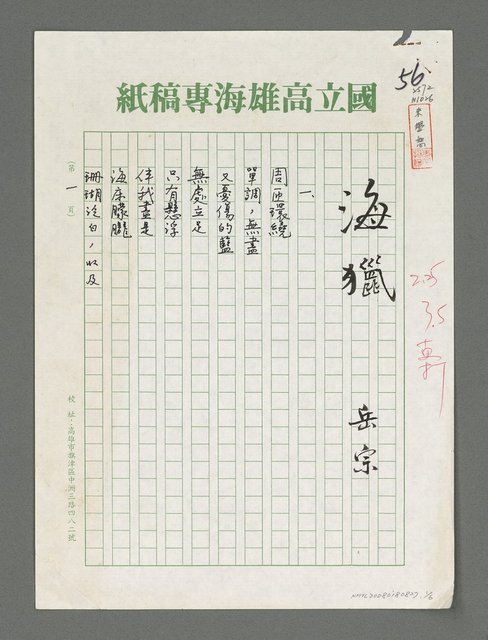 國立高雄海專稿紙
56
海獵
岳宗
一、
周匝環繞
單調，無盡
又憂傷的藍
無處立足
只有懸浮
伴我盡是
海床朦朧
珊瑚泛白，以及
(第一頁)
校址：高雄市旗津區中洲三路四八二號
3.5
NMTL20080180807, 1/6